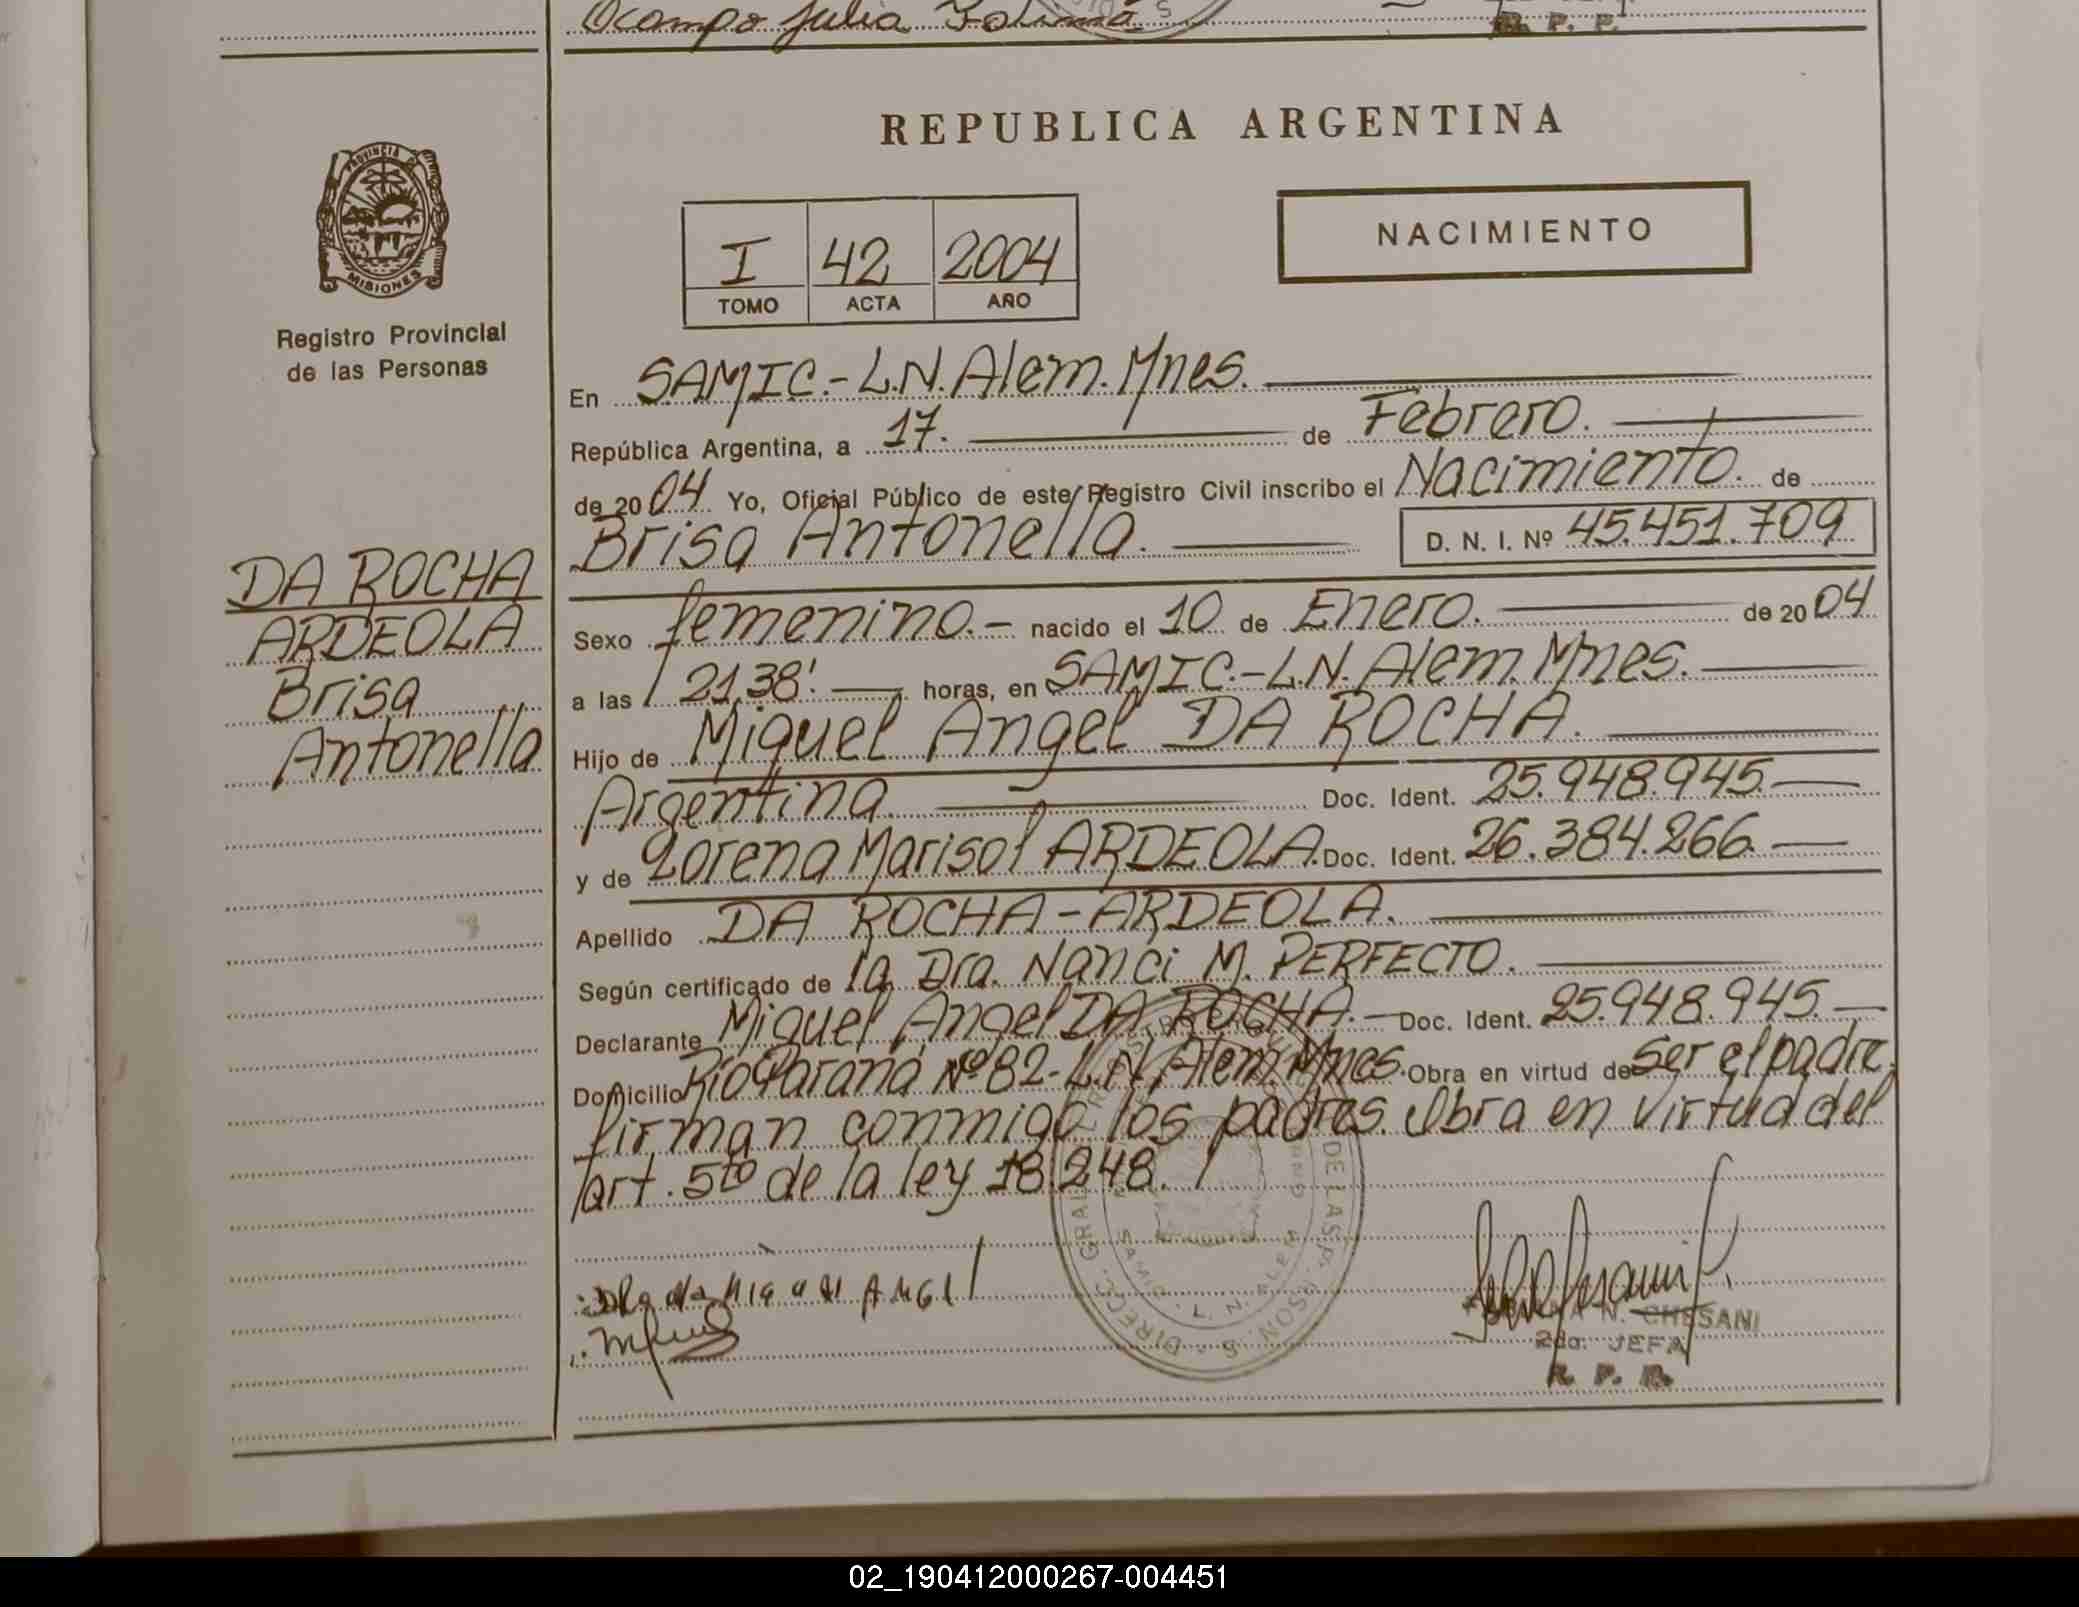 Ocampo Julia
R. P. P.
REPUBLICA ARGENTINA
PROVINCIA DE
MISIONES
Registro Provincial
de las Personas
NACIMIENTO
I 42 2004
TOMO ACTA AÑO
En SAMIC.- L.N. Alem. Mnes.
República Argentina, a 17. de Febrero.
de 2004 Yo, Oficial Público de este Registro Civil inscribo el Nacimiento. de
Brisa Antonella. D. N. I. Nº 45.451.709
DA ROCHA
ARDEOLA
Brisa
Antonella
Sexo femenino.- nacido el 10 de Enero. de 2004
a las 21,38'. horas, en SAMIC.- L.N. Alem. Mnes.
Hijo de Miguel Angel DA ROCHA.
Argentina. Doc. Ident. 25.948.945.
y de Lorena Marisol ARDEOLA. Doc. Ident. 26.384.266.
Apellido DA ROCHA - ARDEOLA.
Según certificado de la Dra. Nanci M. PERFECTO.
Declarante Miguel Angel DA ROCHA. Doc. Ident. 25.948.945.
Domicilio Rio Paraná Nº 82- L.N. Alem. Mnes. Obra en virtud de ser el padre.
firman conmigo los padres. Obra en virtud del
art. 5to de la ley 18.248.
DIRECC. GRAL. DE LAS PERSONAS
SAMIC. L. N. ALEM
N. CHESANI
2da. JEFA
R. P. P.
02_190412000267-004451